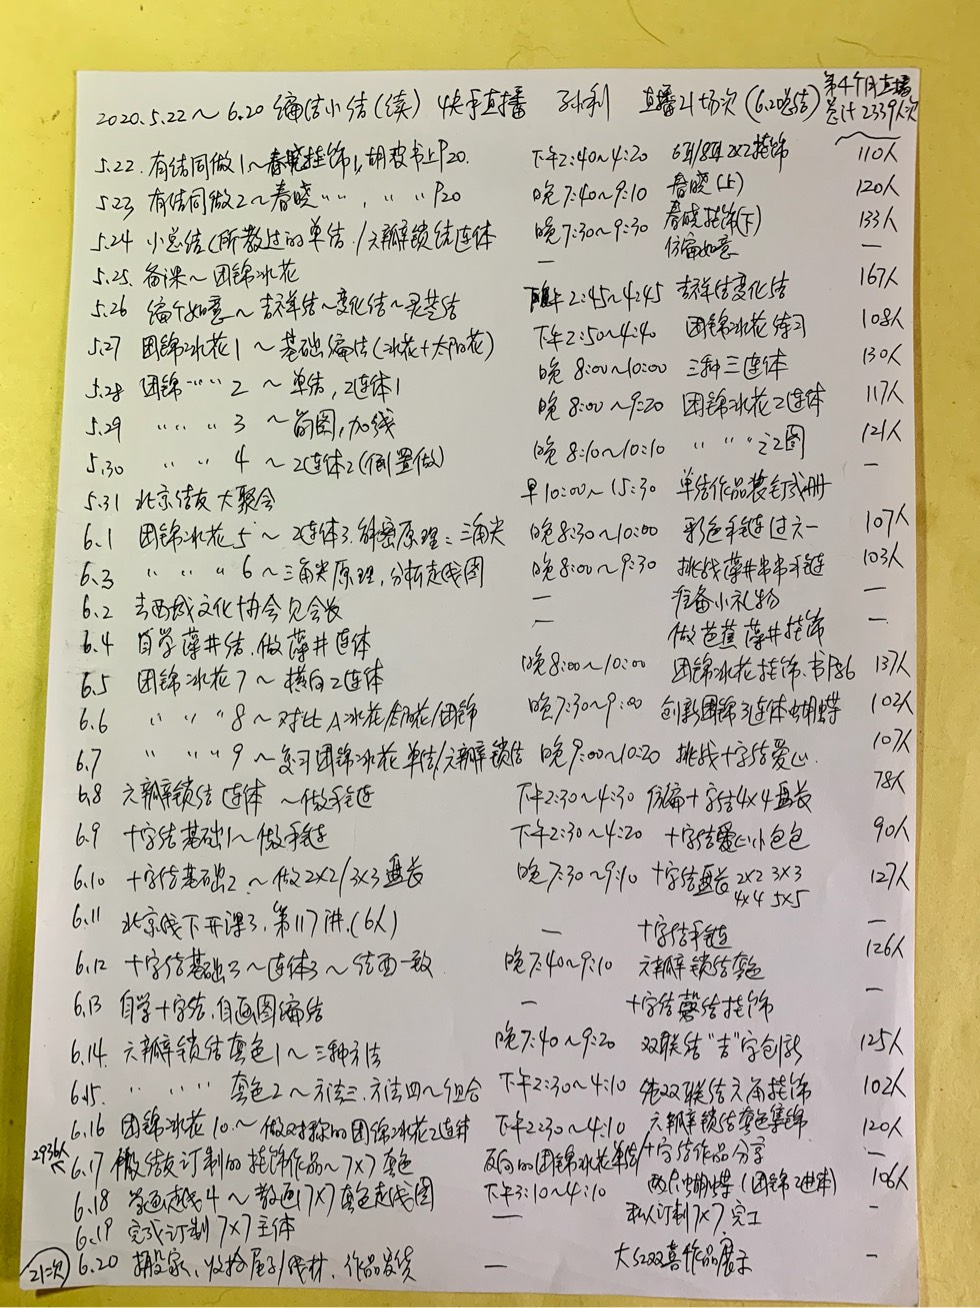 第4个月直播
2020.5.22～6.20 编结小结(续) 快手直播 孙利 直播21场次(6.20总结) 总计2339人次
5.22. 有结同做1～春晓挂饰1,胡 书上P20. 下午2:40～4:20 2×2挂饰 110人
5.23 有结同做2～春晓 〃 〃, 〃 〃 P20 晚7:40～9:10 春晓(上) 120人
5.24 小总结(所教过的单结/六瓣锁结连体 晚7:30～9:30 春晓挂饰(下) 133人
仿编如意
5.25. 备课～团锦冰花 — —
5.26 编个如意～吉祥结～变化结～灵芝结 下午2:45～4:45 吉祥结变化结 167人
5.27 团锦冰花1～基础编结(冰花+太阳花) 下午2:50～4:40 团锦冰花练习 108人
5.28 团锦 〃 〃 2～单结,2连体1 晚8:00～10:00 三种三连体 130人
5.29 〃 〃 〃 3 ～ 加线 晚8:00～9:20 团锦冰花2连体 117人
5.30 〃 〃 4 ～2连体2(倒置做) 晚8:10～10:10 〃 〃 〃 之2图 121人
5.31 北京结友大聚会 早10:00～15:30 单结作品装订成册 —
6.1 团锦冰花5～2连体3.解密原理:三角尖 晚8:30～10:00 彩色手链过六一 107人
6.3 〃 〃 〃 6～三角尖原理,分析走线图 晚8:00～9:30 挑战藻井串串手链 103人
6.2 去西城文化协会见会长 — 准备小礼物 —
6.4 自学藻井结.做藻井连体 — 做芭蕉藻井挂饰 —
6.5 团锦冰花7～横向2连体 晚8:00～10:00 团锦冰花挂饰.书P86 137人
6.6 〃 〃 〃 8～对比A冰花/ /团锦 晚7:30～9:00 创新团锦3连体蝴蝶 102人
6.7 〃 〃 〃 9～复习团锦冰花单结/六瓣锁结 晚9:00～10:20 挑战十字结爱心. 107人
6.8 六瓣锁结连体～做手链 下午2:30～4:30 仿编十字结4×4盘长 78人
6.9 十字结基础1～做手链 下午2:30～4:20 十字结爱心小包包 90人
6.10 十字结基础2～做2×2/3×3盘长 晚7:30～9:10 十字结盘长2×2 3×3 127人
4×4 5×5
6.11 北京线下开课3,第117讲.(6人) — 十字结手链 —
6.12 十字结基础3～连体3～结面一致 晚7:40～9:10 六瓣锁结套色 126人
6.13 自学十字结.自画图编结 — 十字结磬结挂饰 —
6.14. 六瓣锁结套色1～三种方法 晚7:40～9:20 双联结"吉"字创新 125人
6.15. 〃 〃 〃 套色2～方法三.方法四～组合 下午2:30～4:10 双联结六角挂饰 102人
6.16 团锦冰花10.～做对称的团锦冰花2连体 下午2:30～4:10 六瓣锁结套色集锦 120人
2936人
6.17 做结友订制的挂饰作品～7×7套色 反向的团锦冰花单结/十字结作品分享
6.18 学画走线4～教画7×7套色走线图 下午3:10～4:10 两只蝴蝶(团锦2连体) 106人
6.19 完成订制7×7主体 — 私人订制7×7完工 —
21次 6.20 搬家、收拾屋子/线材、作品发货 — 大红双喜作品展示 —